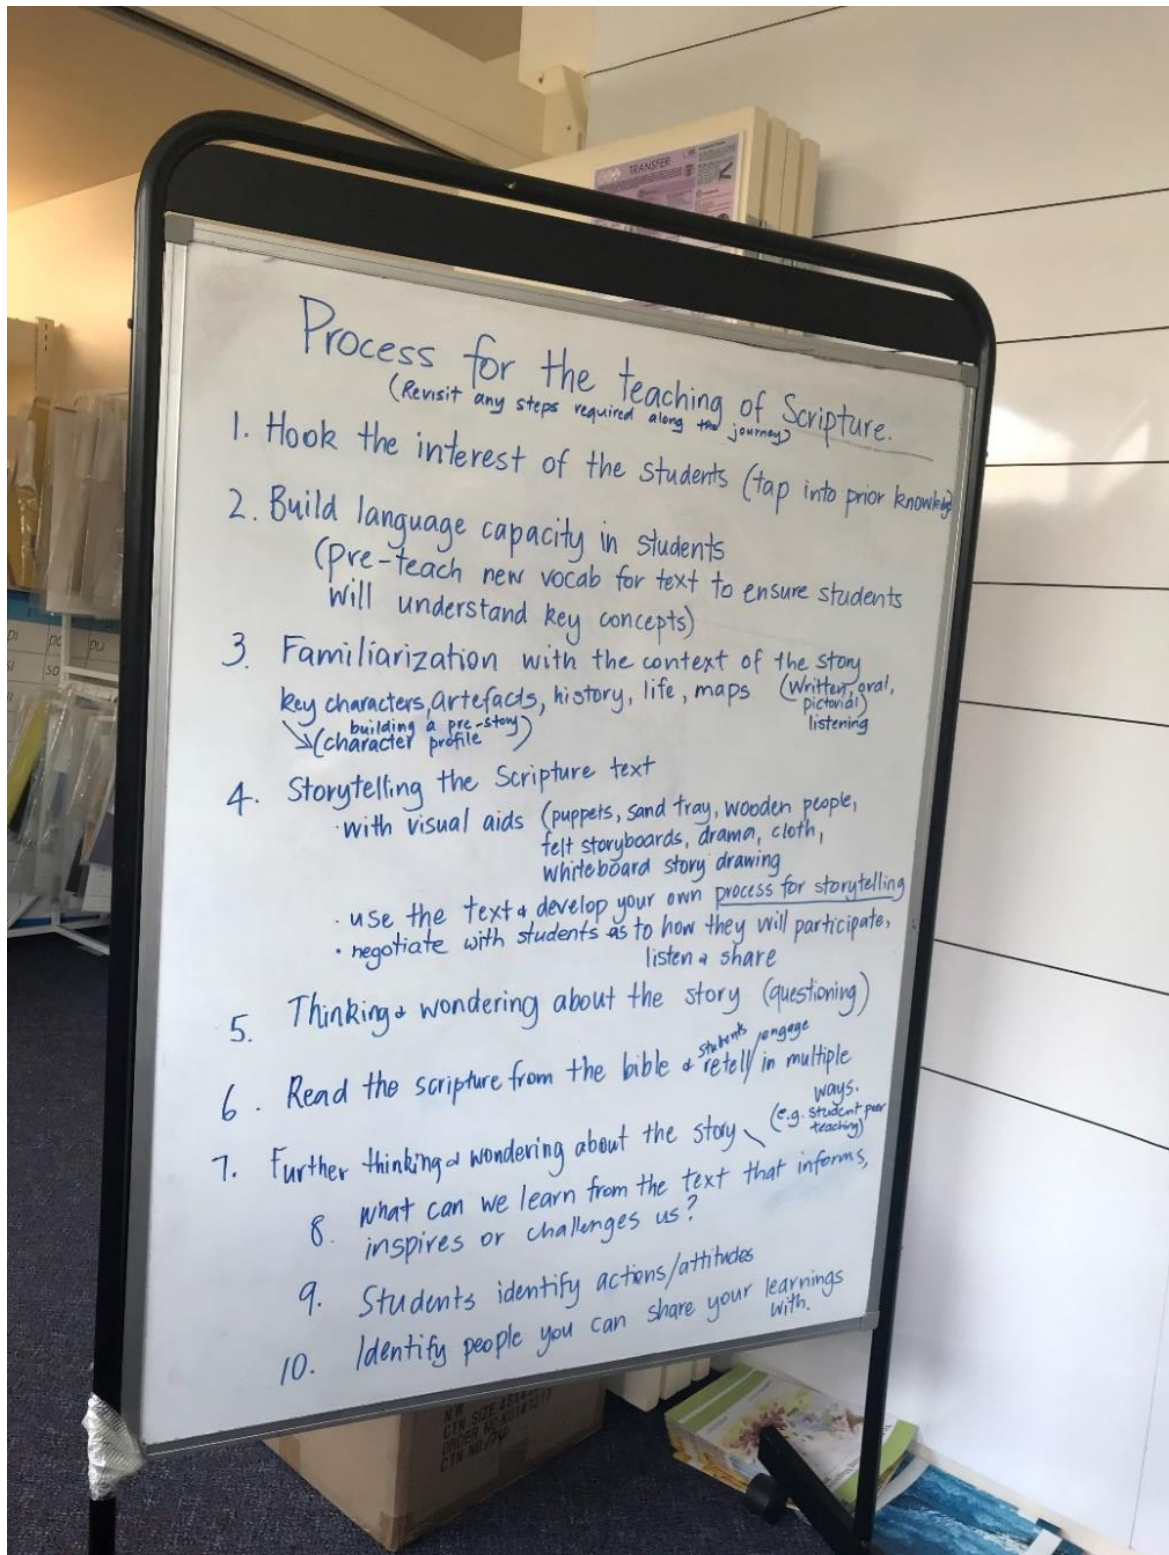 TRANSFER
Process for the teaching of Scripture.
(Revisit any steps required along the journey)
1. Hook the interest of the students (tap into prior knowledge
2. Build language capacity in students
(pre-teach new vocab for text to ensure students
will understand key concepts)
3. Familiarization with the context of the story
key characters, artefacts, history, life, maps (Written, oral,
pictorial)
listening
building a pre-story)
(character profile
4. Storytelling the Scripture text
·with visual aids (puppets, sand tray, wooden people,
felt storyboards, drama, cloth,
whiteboard story drawing
· use the text & develop your own process for storytelling
· negotiate with students as to how they will participate,
listen & share
5. Thinking & wondering about the story (questioning)
students engage
6. Read the scripture from the bible & retell/in multiple
ways.
(e.g. student peer
teaching)
7. Further thinking & wondering about the story
8. what can we learn from the text that informs,
inspires or challenges us?
9. Students identify actions/attitudes
10. Identify people you can share your learnings
with.
pu
so
N.W.
CTN SIZE
ORDER NO.
CTN NO.